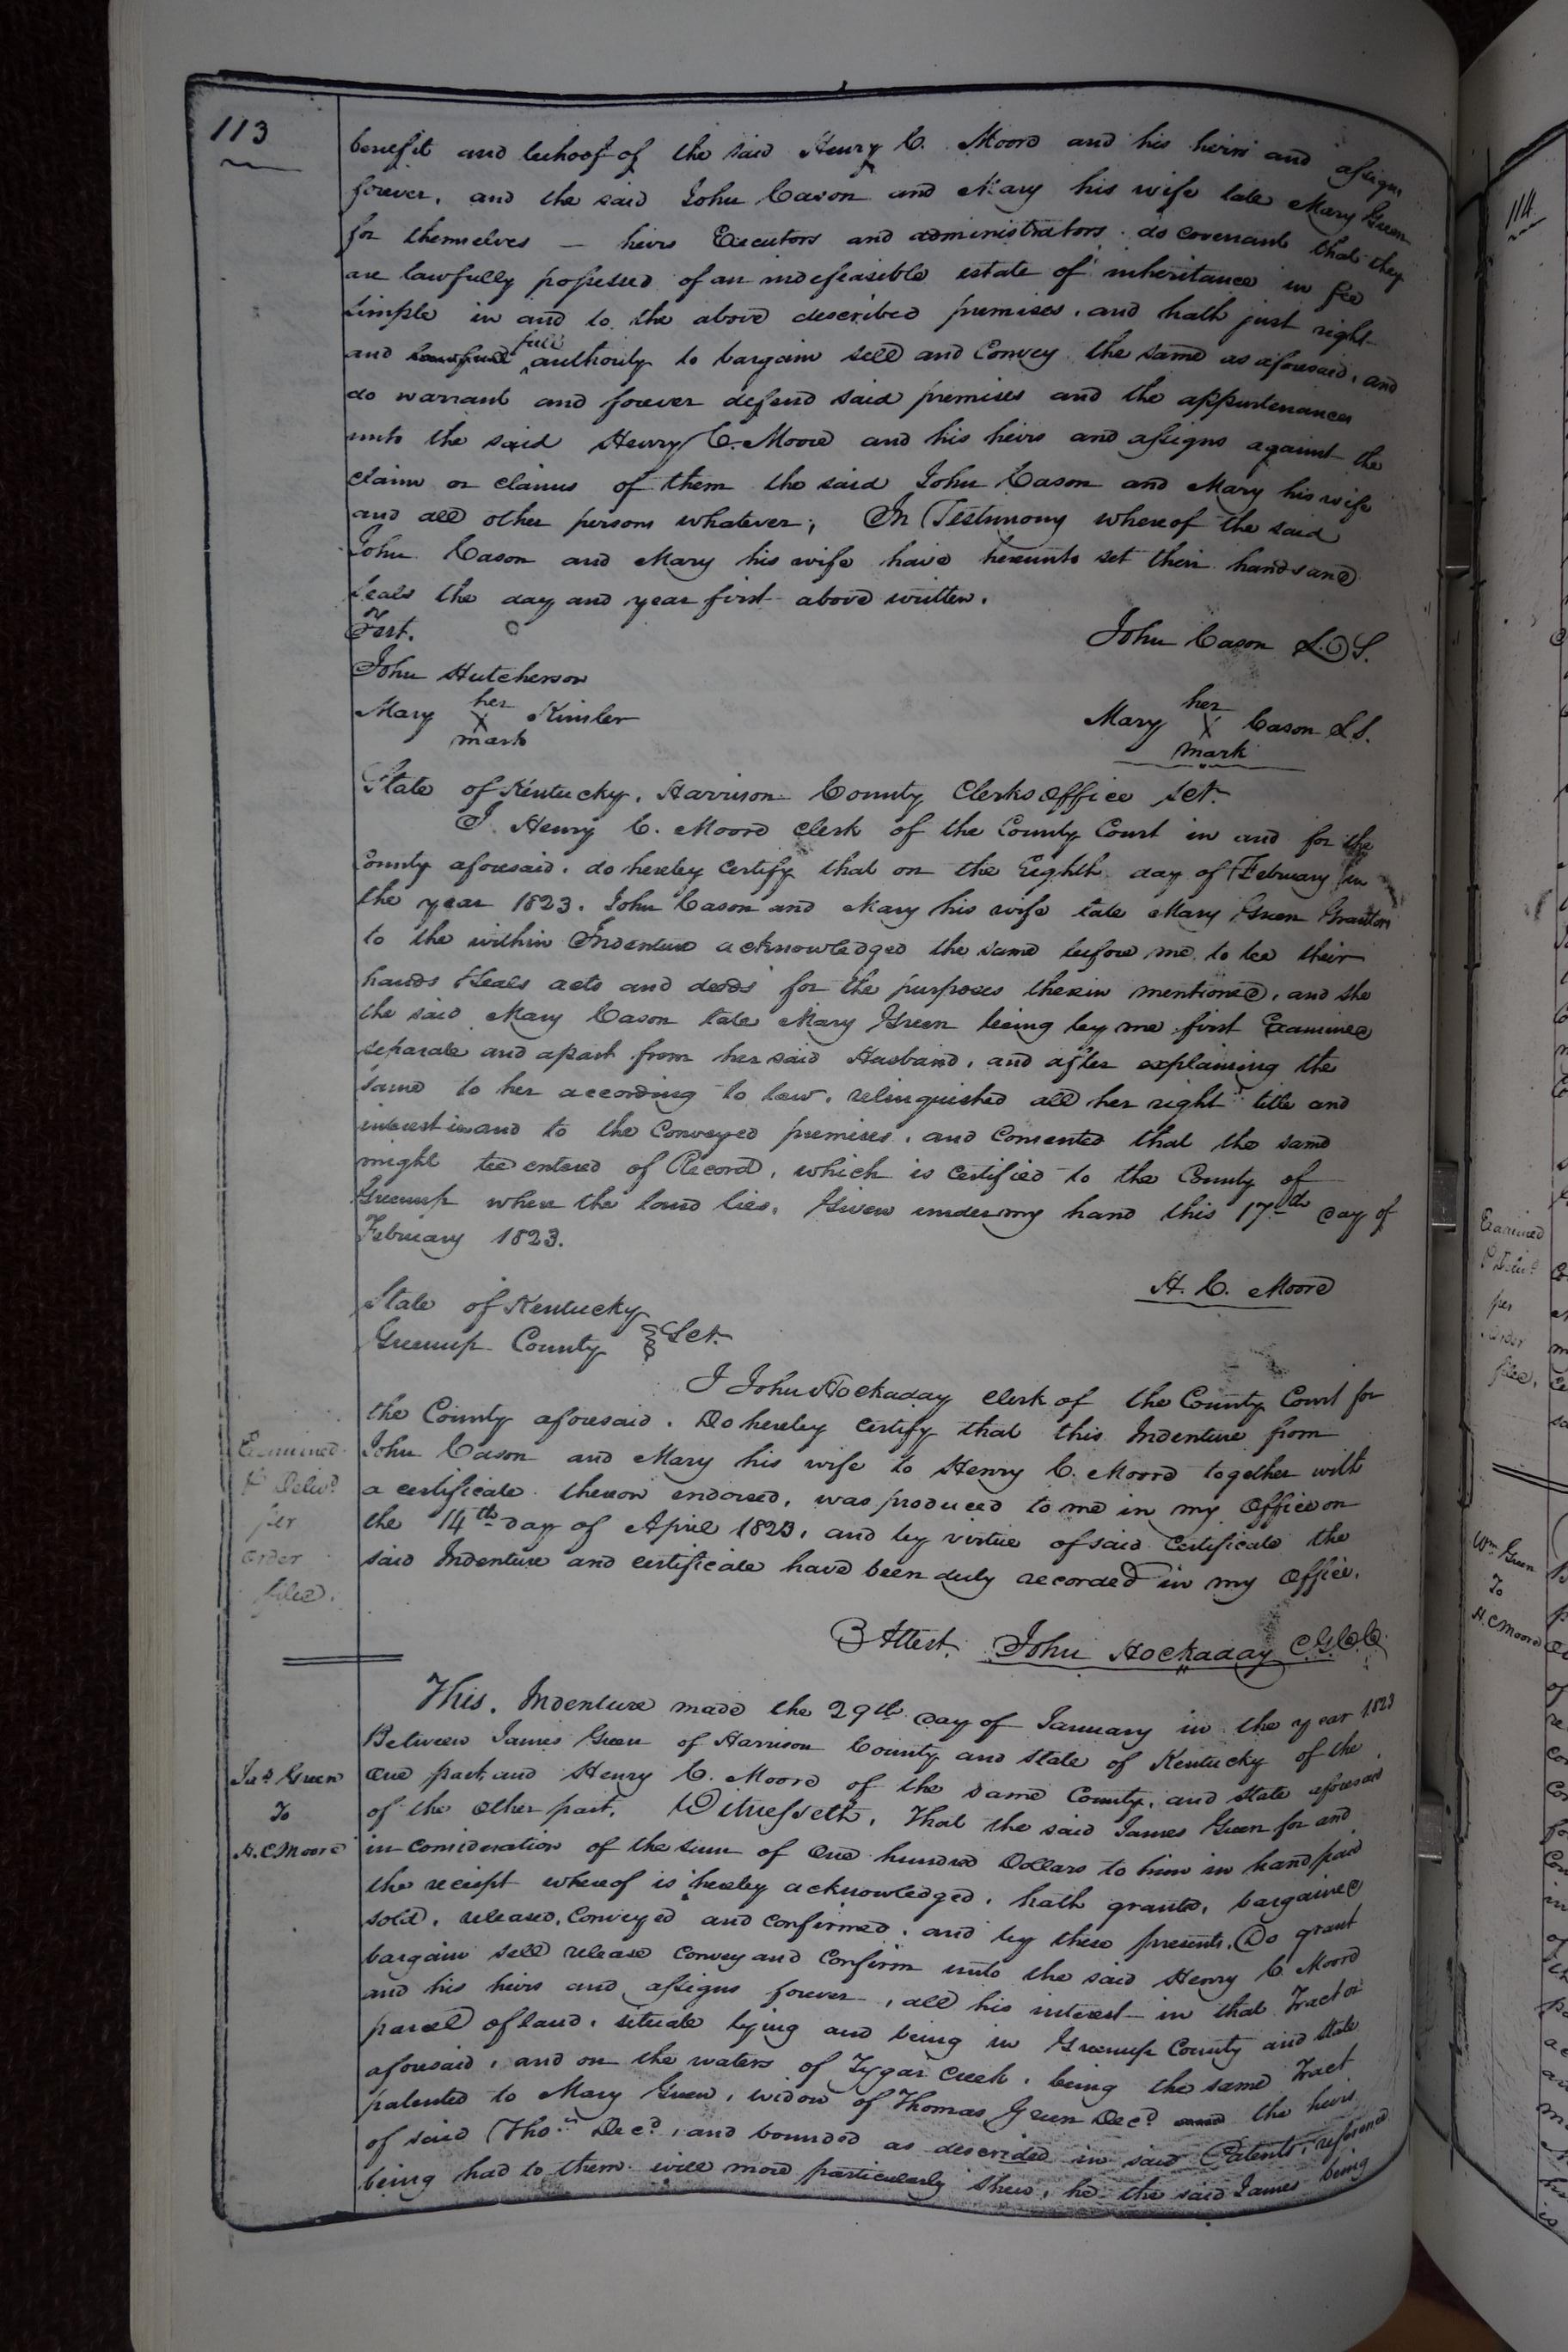 113
benefit and behoof of the said Henry C. Moore and his heirs and assigns
forever, and the said John Cason and Mary his wife late Mary Green
for themselves — heirs Executors and administrators do covenant that they
are lawfully possessed of an indefeasible estate of inheritance in fee
simple in and to the above described premises, and hath just right
and full authority to bargain sell and Convey the same as aforesaid, and
do warrant and forever defend said premises and the appurtenances
unto the said Henry C. Moore and his heirs and assigns against the
claim or claims of them the said John Cason and Mary his wife
and all other persons whatever; In Testimony whereof the said
John Cason and Mary his wife have hereunto set their hands and
seals the day and year first above written.
Test.
John Cason L.S.
John Hutcherson
Mary her X mark Kinsler
Mary her X mark Cason L.S.
State of Kentucky, Harrison County Clerks office Sct.
I Henry C. Moore Clerk of the County Court in and for the
County aforesaid, do hereby Certify that on the Eighth day of February in
the year 1823. John Cason and Mary his wife late Mary Green Grantors
to the within Indenture acknowledged the same before me to be their
hands & seals acts and deeds for the purposes therein mentioned, and she
the said Mary Cason late Mary Green being by me first Examined
separate and apart from her said Husband, and after explaining the
same to her according to law, relinquished all her right title and
interest in and to the Conveyed premises, and Consented that the same
might be entered of Record, which is Certified to the County of
Greenup where the land lies. Given under my hand this 17th day of
February 1823.
H. C. Moore
State of Kentucky
Greenup County Sct.
I John Hockaday Clerk of the County Court for
the County aforesaid. Do hereby Certify that this Indenture from
John Cason and Mary his wife to Henry C. Moore together with
a certificate thereon endorsed, was produced to me in my Office on
the 14th day of April 1823, and by virtue of said Certificate the
said Indenture and certificate have been duly recorded in my Office.
Examined
& Delivd
per
order
filed.
Attest. John Hockaday C.G.C.C.
This Indenture made the 29th day of January in the year 1823
Between James Green of Harrison County and State of Kentucky of the
Jas Green
To
H. C Moore
One part, and Henry C. Moore of the same County, and State aforesaid
of the Other part. Witnesseth, That the said James Green for and
in consideration of the sum of One hundred Dollars to him in hand paid
the receipt whereof is hereby acknowledged, hath granted, bargained
sold, released, Conveyed and confirmed, and by these presents, Do grant
bargain sell release convey and Confirm unto the said Henry C. Moore
and his heirs and assigns forever, all his interest in that Tract or
parcel of land, situate lying and being in Greenup County and State
aforesaid, and on the waters of Tygar Creek, being the same Tract
patented to Mary Green, widow of Thomas Green Decd the heirs
of said Thos Decd, and bounded as descrided in said Patents, reference
being had to them will more particularly shew, he the said James being
114
Examined
& Delivd
per
order
filed.
Wm Green
To
H. C Moore